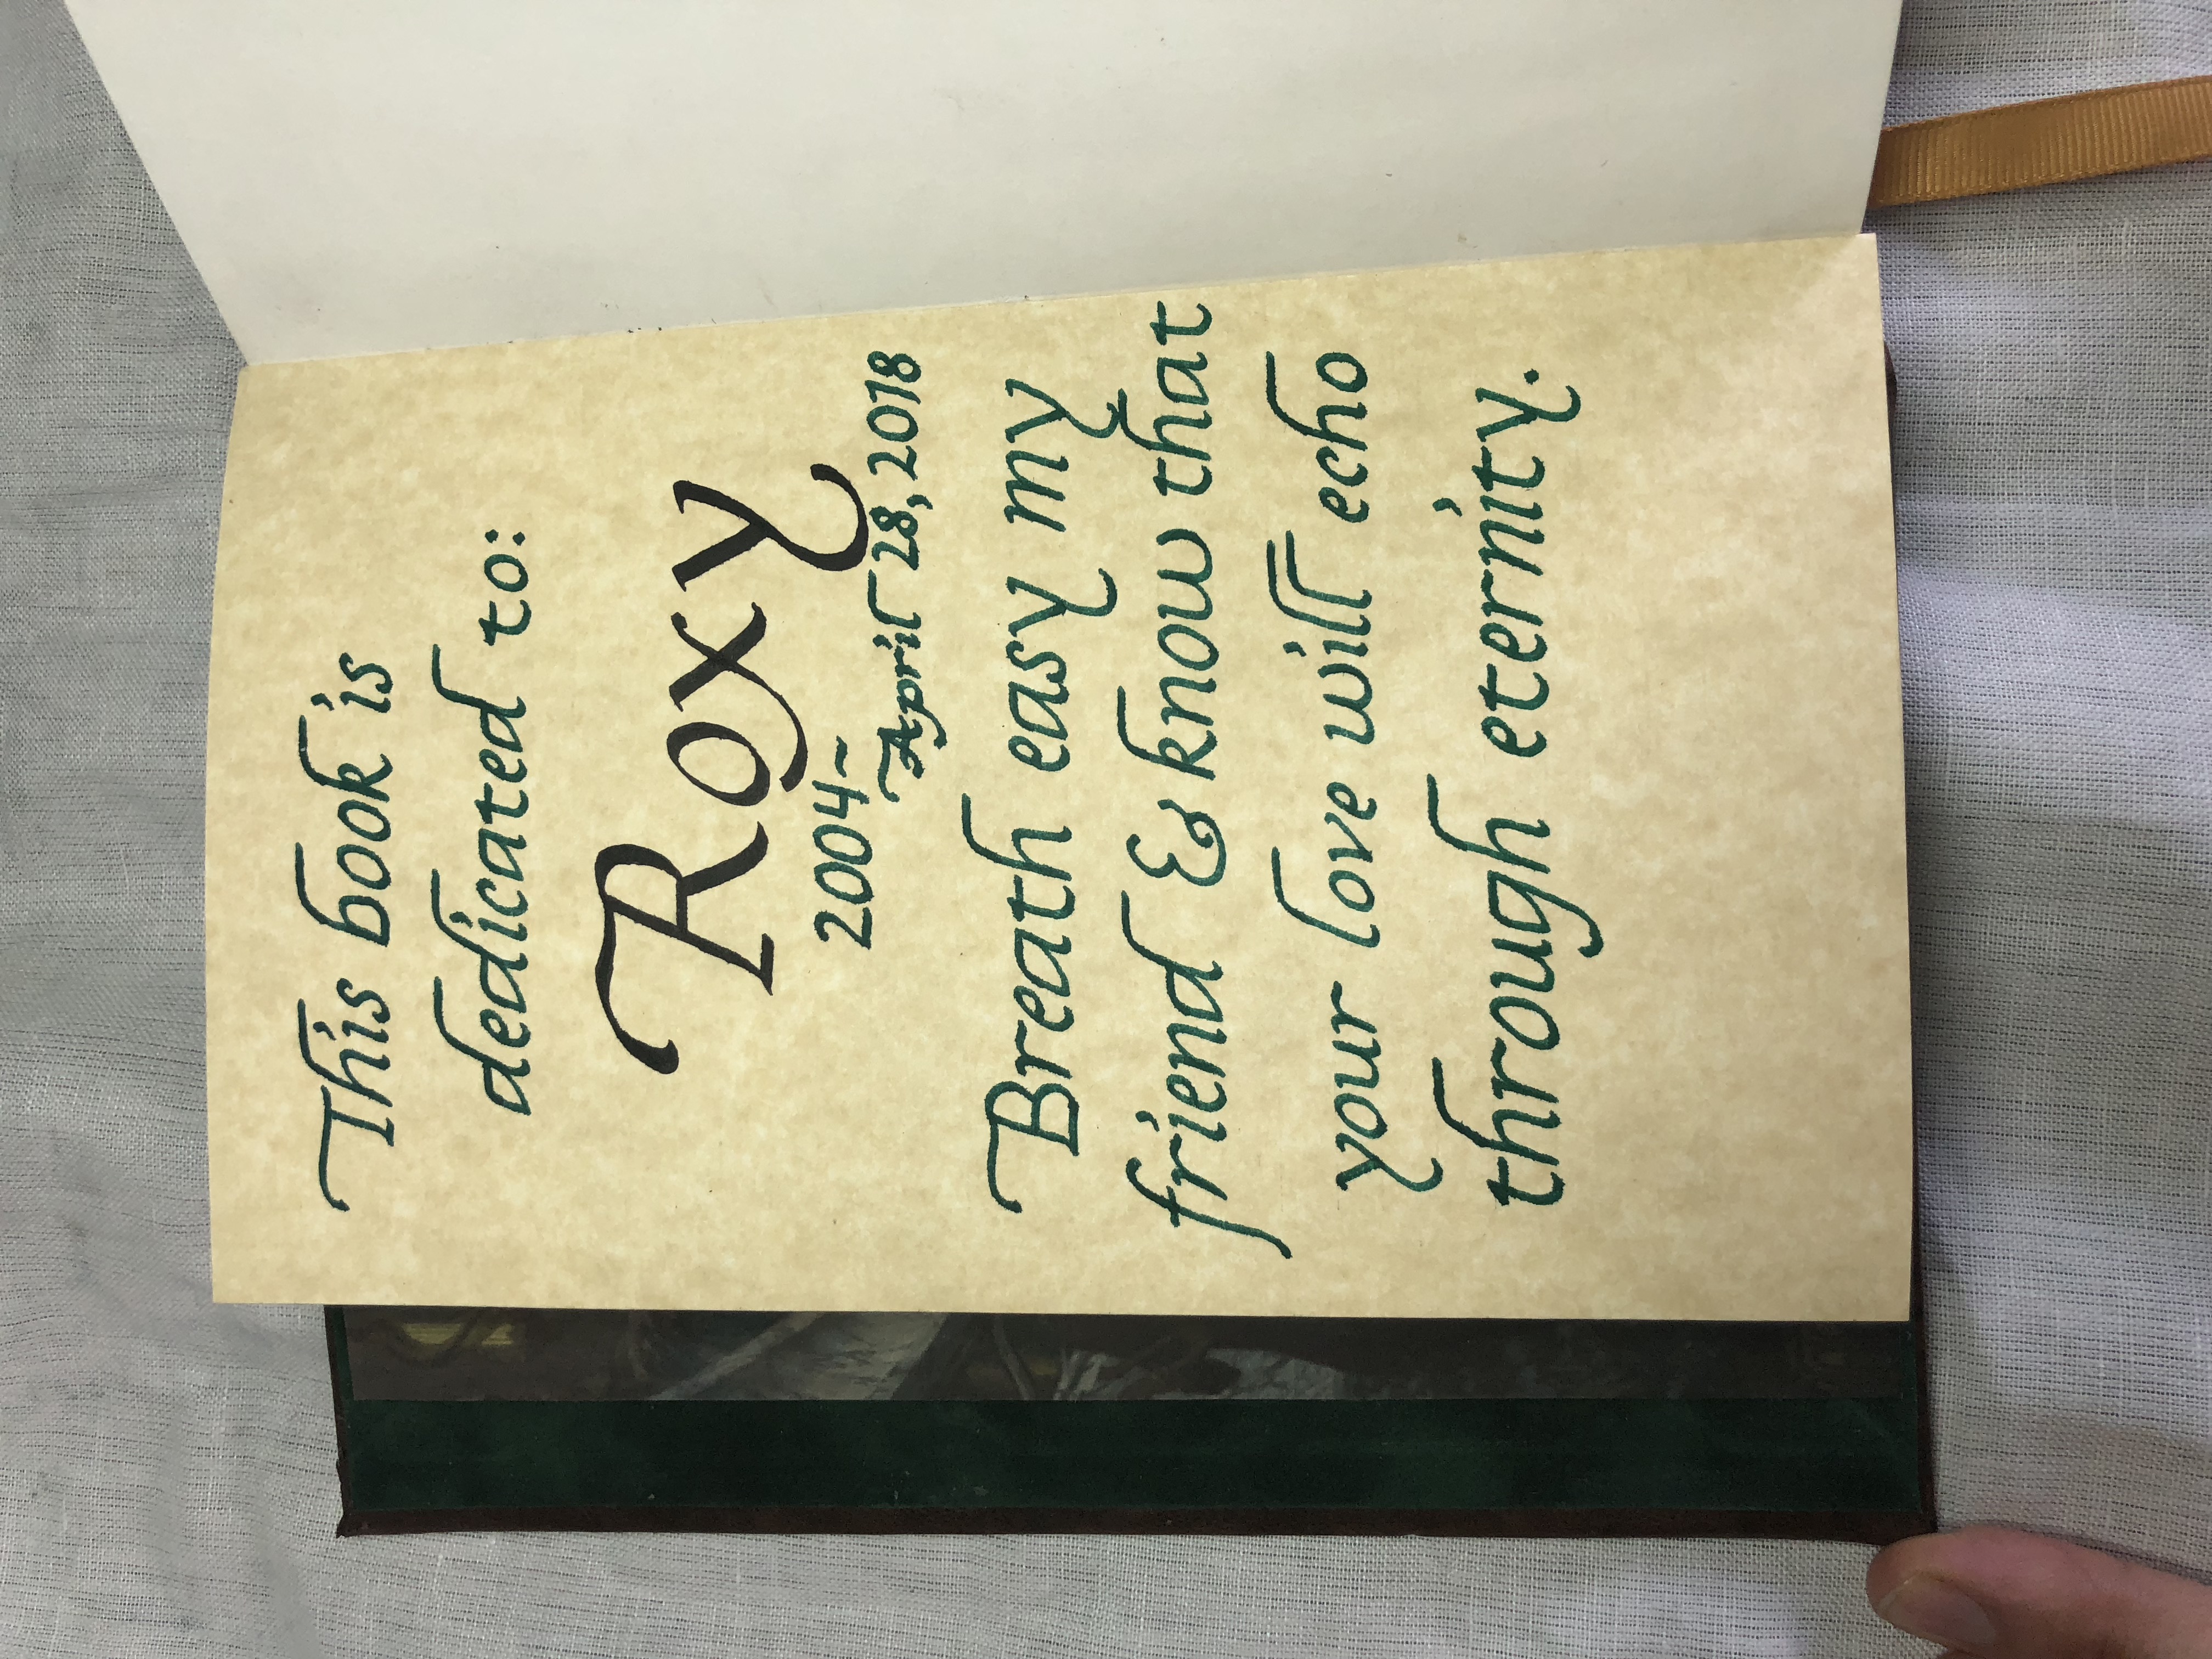 This book is
dedicated to:
Roxy
2004~
April 28, 2018
Breath easy my
friend & know that
your love will echo
through eternity.